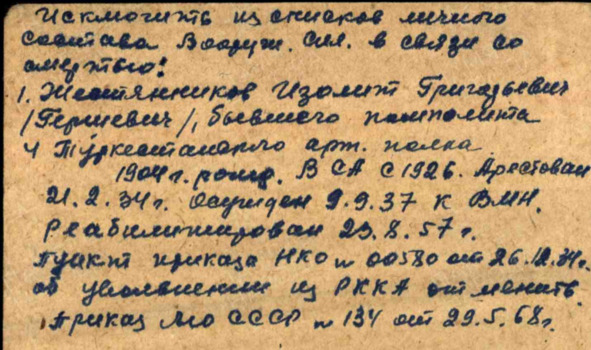 Исключить из списков личного
состава Вооруж. Сил. в связи со
смертью:
1. Жестянников Изолит Григорьевич
/Гершевич/, бывшего помполита
4 Туркестанского арт. полка
1904 г. рожд. В СА с 1926. Арестован
21.2.34г. Осужден 9.9.37 к ВМН.
Реабилитирован 23.8.57 г.
Пункт приказа НКО № 00580 от 26.12.34г.
об увольнении из РККА отменить.
Приказ МО СССР № 134 от 29.5.68г.